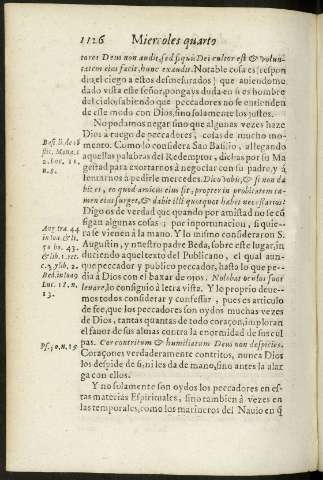 1126 Miercoles quarto
tores Deus non audit, sed si quis Dei cultor est & volun-
tatem eius facit, hunc exaudit. Notable cosa es; respon
dio, el ciego a estos desmesurados; que auiendome
dado vista este señor, pongays duda en si es hombre
del cielo, sabiendo que peccadores no se entienden
de este modo con Dios, sino solamente los justos.
No podamos negar sino que algunas vezes haze
Dios à ruego de peccadores, cosas de mucho mo-
mento. Como lo considera San Basilio, allegando
aquellas palabras del Redemptor, dichas por su Ma
gestad para exortarnos à negociar con su padre, y à
leuantarnos à pedirle mercedes. Dico vobis, & si non da
bit ei, eo quod amicus eius sit, propter improbitatem ta-
men eius surget, & dabit illi quotquot habet necessarios:
Digoos de verdad que quando por amistad no se cō
sigan algunas cosas; por inportunacion, siquie-
ra se vienen à la mano. Y lo mismo consideraron S.
Augustin, y nuestro padre Beda, sobre este lugar, in
duciendo aquel texto del Publicano, el qual aun-
que peccador y publico peccador, hasta lo que pe-
dia à Dios con el baxar de ojos. Nolebat oculos suos
leuare, lo consiguio à letra vista. Y lo proprio deue-
mos todos considerar y confessar, pues es articulo
de fee, que los peccadores son oydos muchas vezes
de Dios, tantas quantas de todo coraçon, imploran
el fauor de sus almas contra la enormidad de sus cul
pas. Cor contritum & humiliatum Deus non despicies.
Coraçones verdaderamente contritos, nunca Dios
los despide de si, ni les da de mano, sino antes la alar
ga con ellos.
Y no solamente son oydos los peccadores en es-
tas materias Espirituales, sino tambien à vezes en
las temporales, como los marineros del Nauio en q̃
Basi. li. de
Mona. c
2. Luc. 11.
n. 8.
Aug. tra. 44
in Ioa. & li.
50 ho. 43.
& lib. 1. ret.
c. 4.
Bed. in Ioa. 9
Luc. 18. n.
13.
Ps. 50. n. 19.